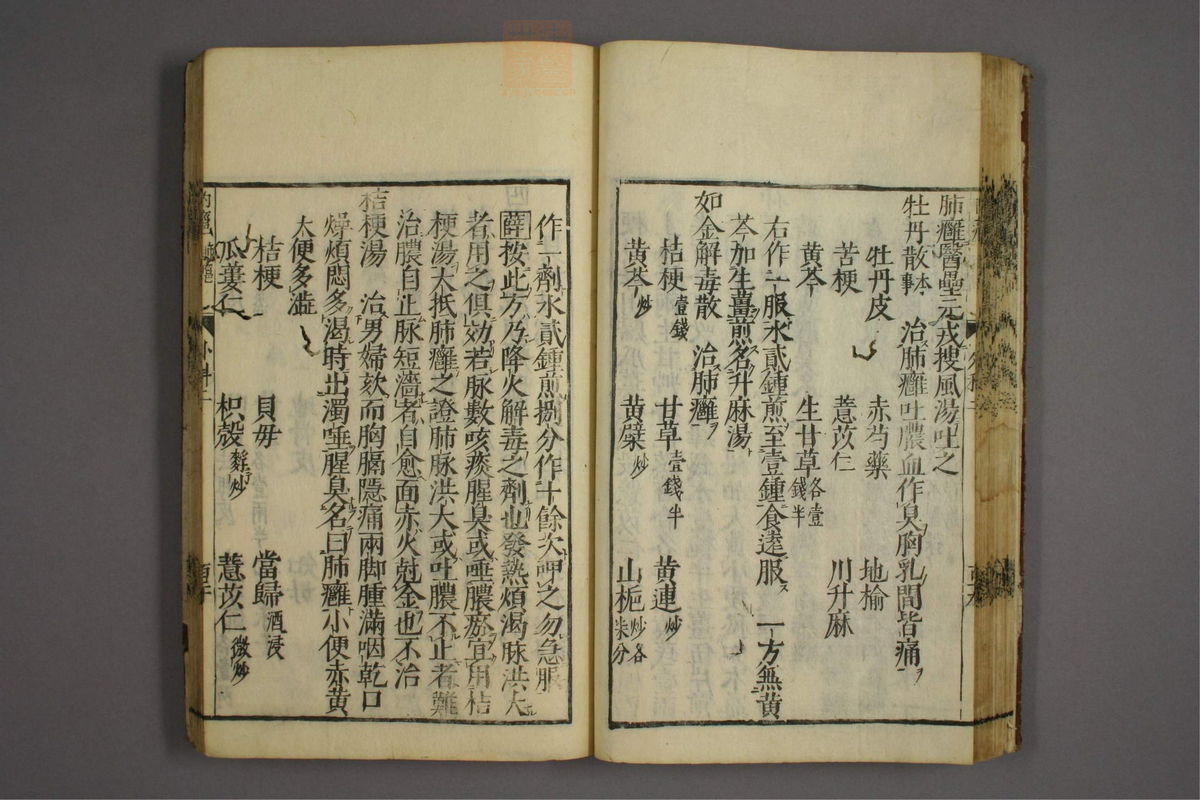 肺癰醫壘元戎搜風湯吐之
牡丹散本事 治肺癰吐膿血作臭胸乳間皆痛
牡丹皮 赤芍藥 地榆
苦梗 薏苡仁 川升麻
黃芩 生甘草各壹錢半
右作一服水貳鍾煎至壹鍾食遠服 一方無黃
芩加生薑煎名升麻湯
如金解毒散 治肺癰
桔梗壹錢 甘草壹錢半 黃連炒
黃芩炒 黃蘗炒 山梔炒各柒分
作一劑水貳鍾煎捌分作十餘次呷之勿急服
薛按此方乃降火解毒之劑也發熱煩渴脉洪大
者用之俱効若脉數咳痰腥臭或唾膿瘀宜用桔
梗湯大抵肺癰之證肺脉洪大或吐膿不止者難
治膿自止脉短濇者自愈面赤火尅金也不治
桔梗湯 治男婦欬而胸膈隱痛兩脚腫滿咽乾口
燥煩悶多渴時出濁唾腥臭名曰肺癰小便赤黃
大便多澁
桔梗 貝母 當歸酒浸
瓜蔞仁 枳殼麩炒 薏苡仁微炒
外科二